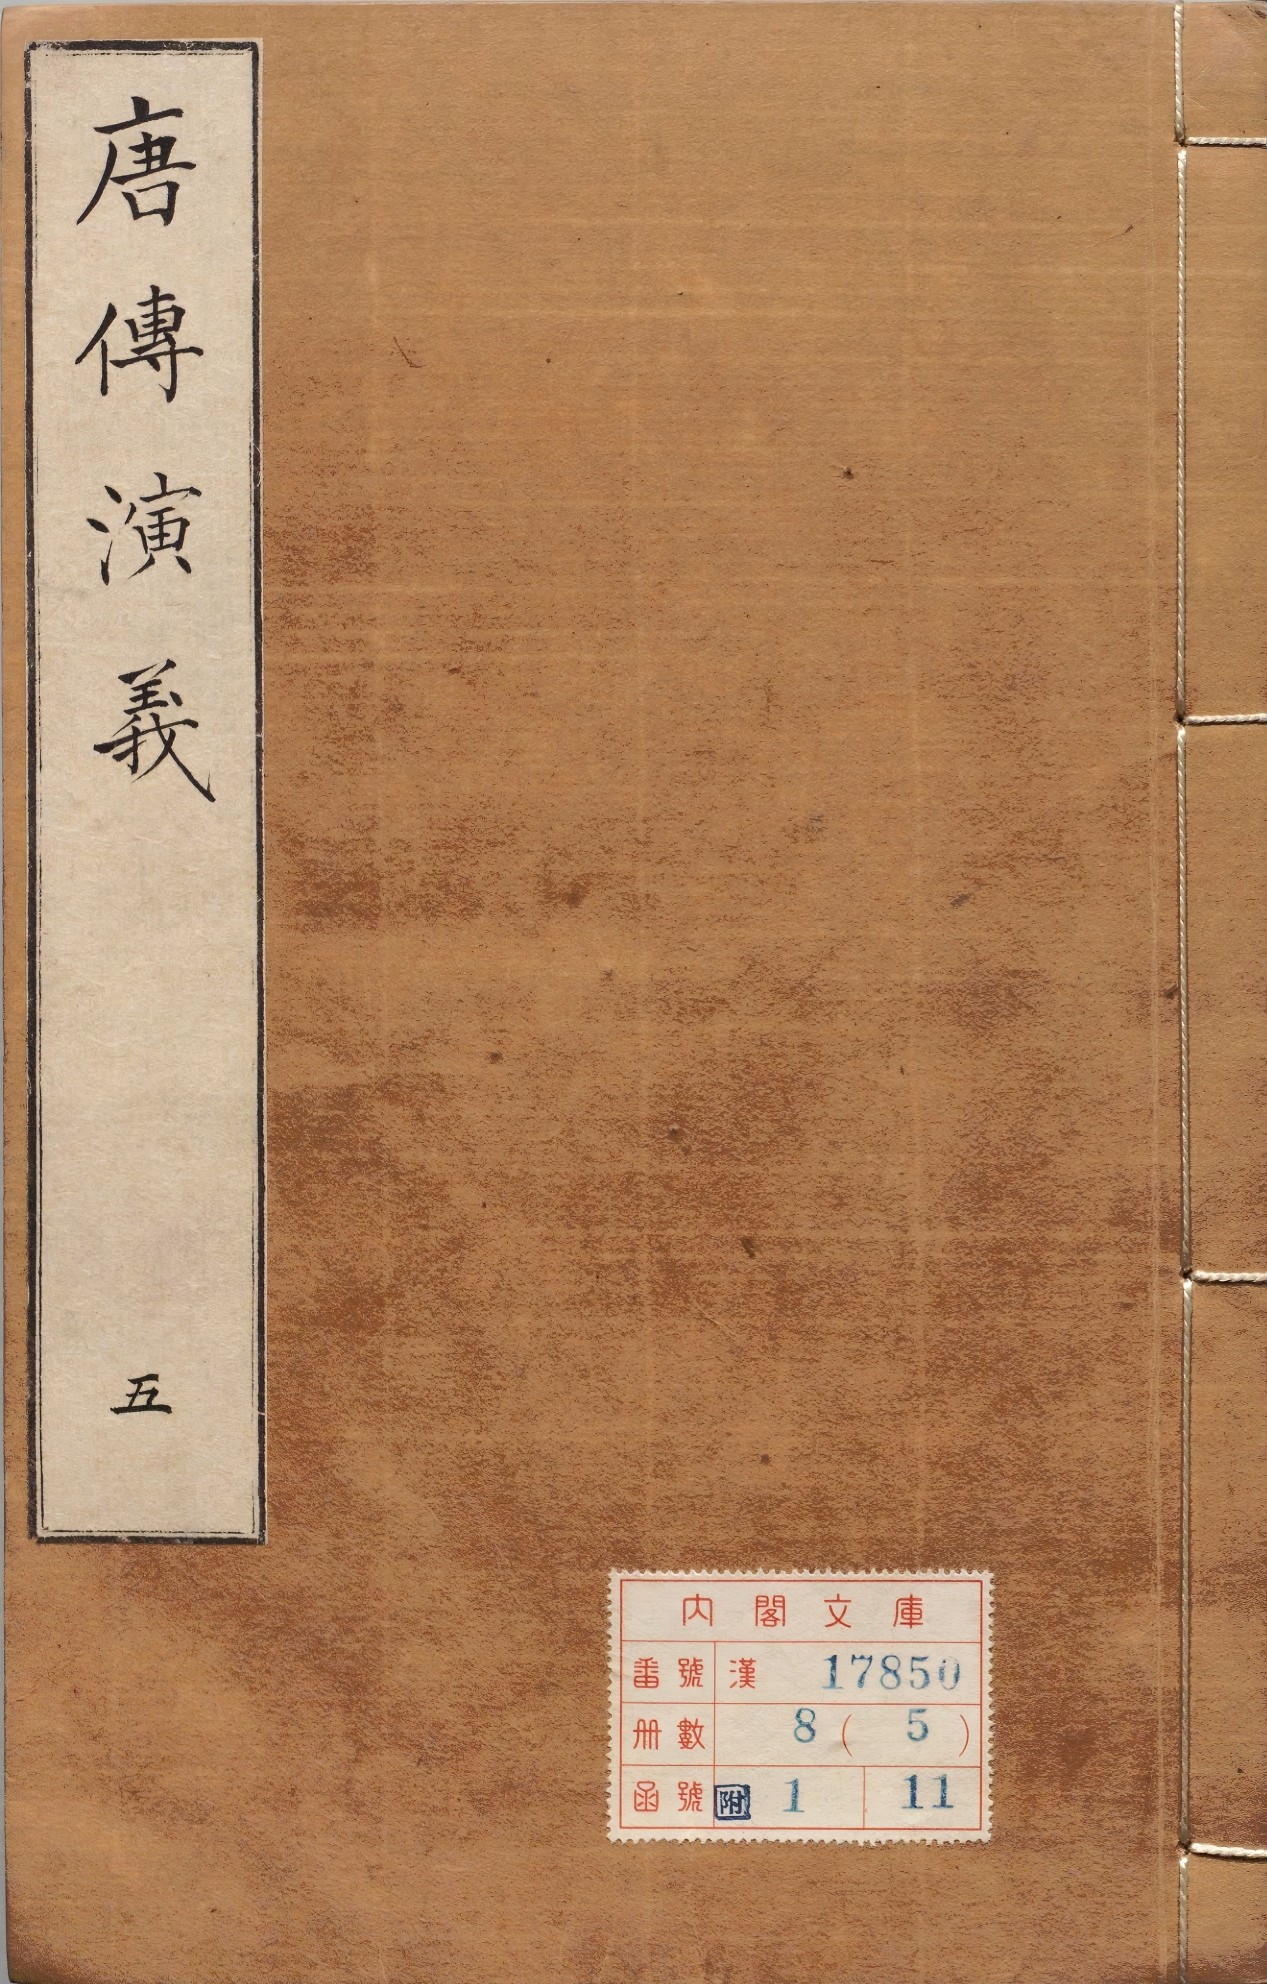 唐傳演義
五
内閣文庫
番號 漢 17850
册數 8 ( 5 )
函號 附 1 11